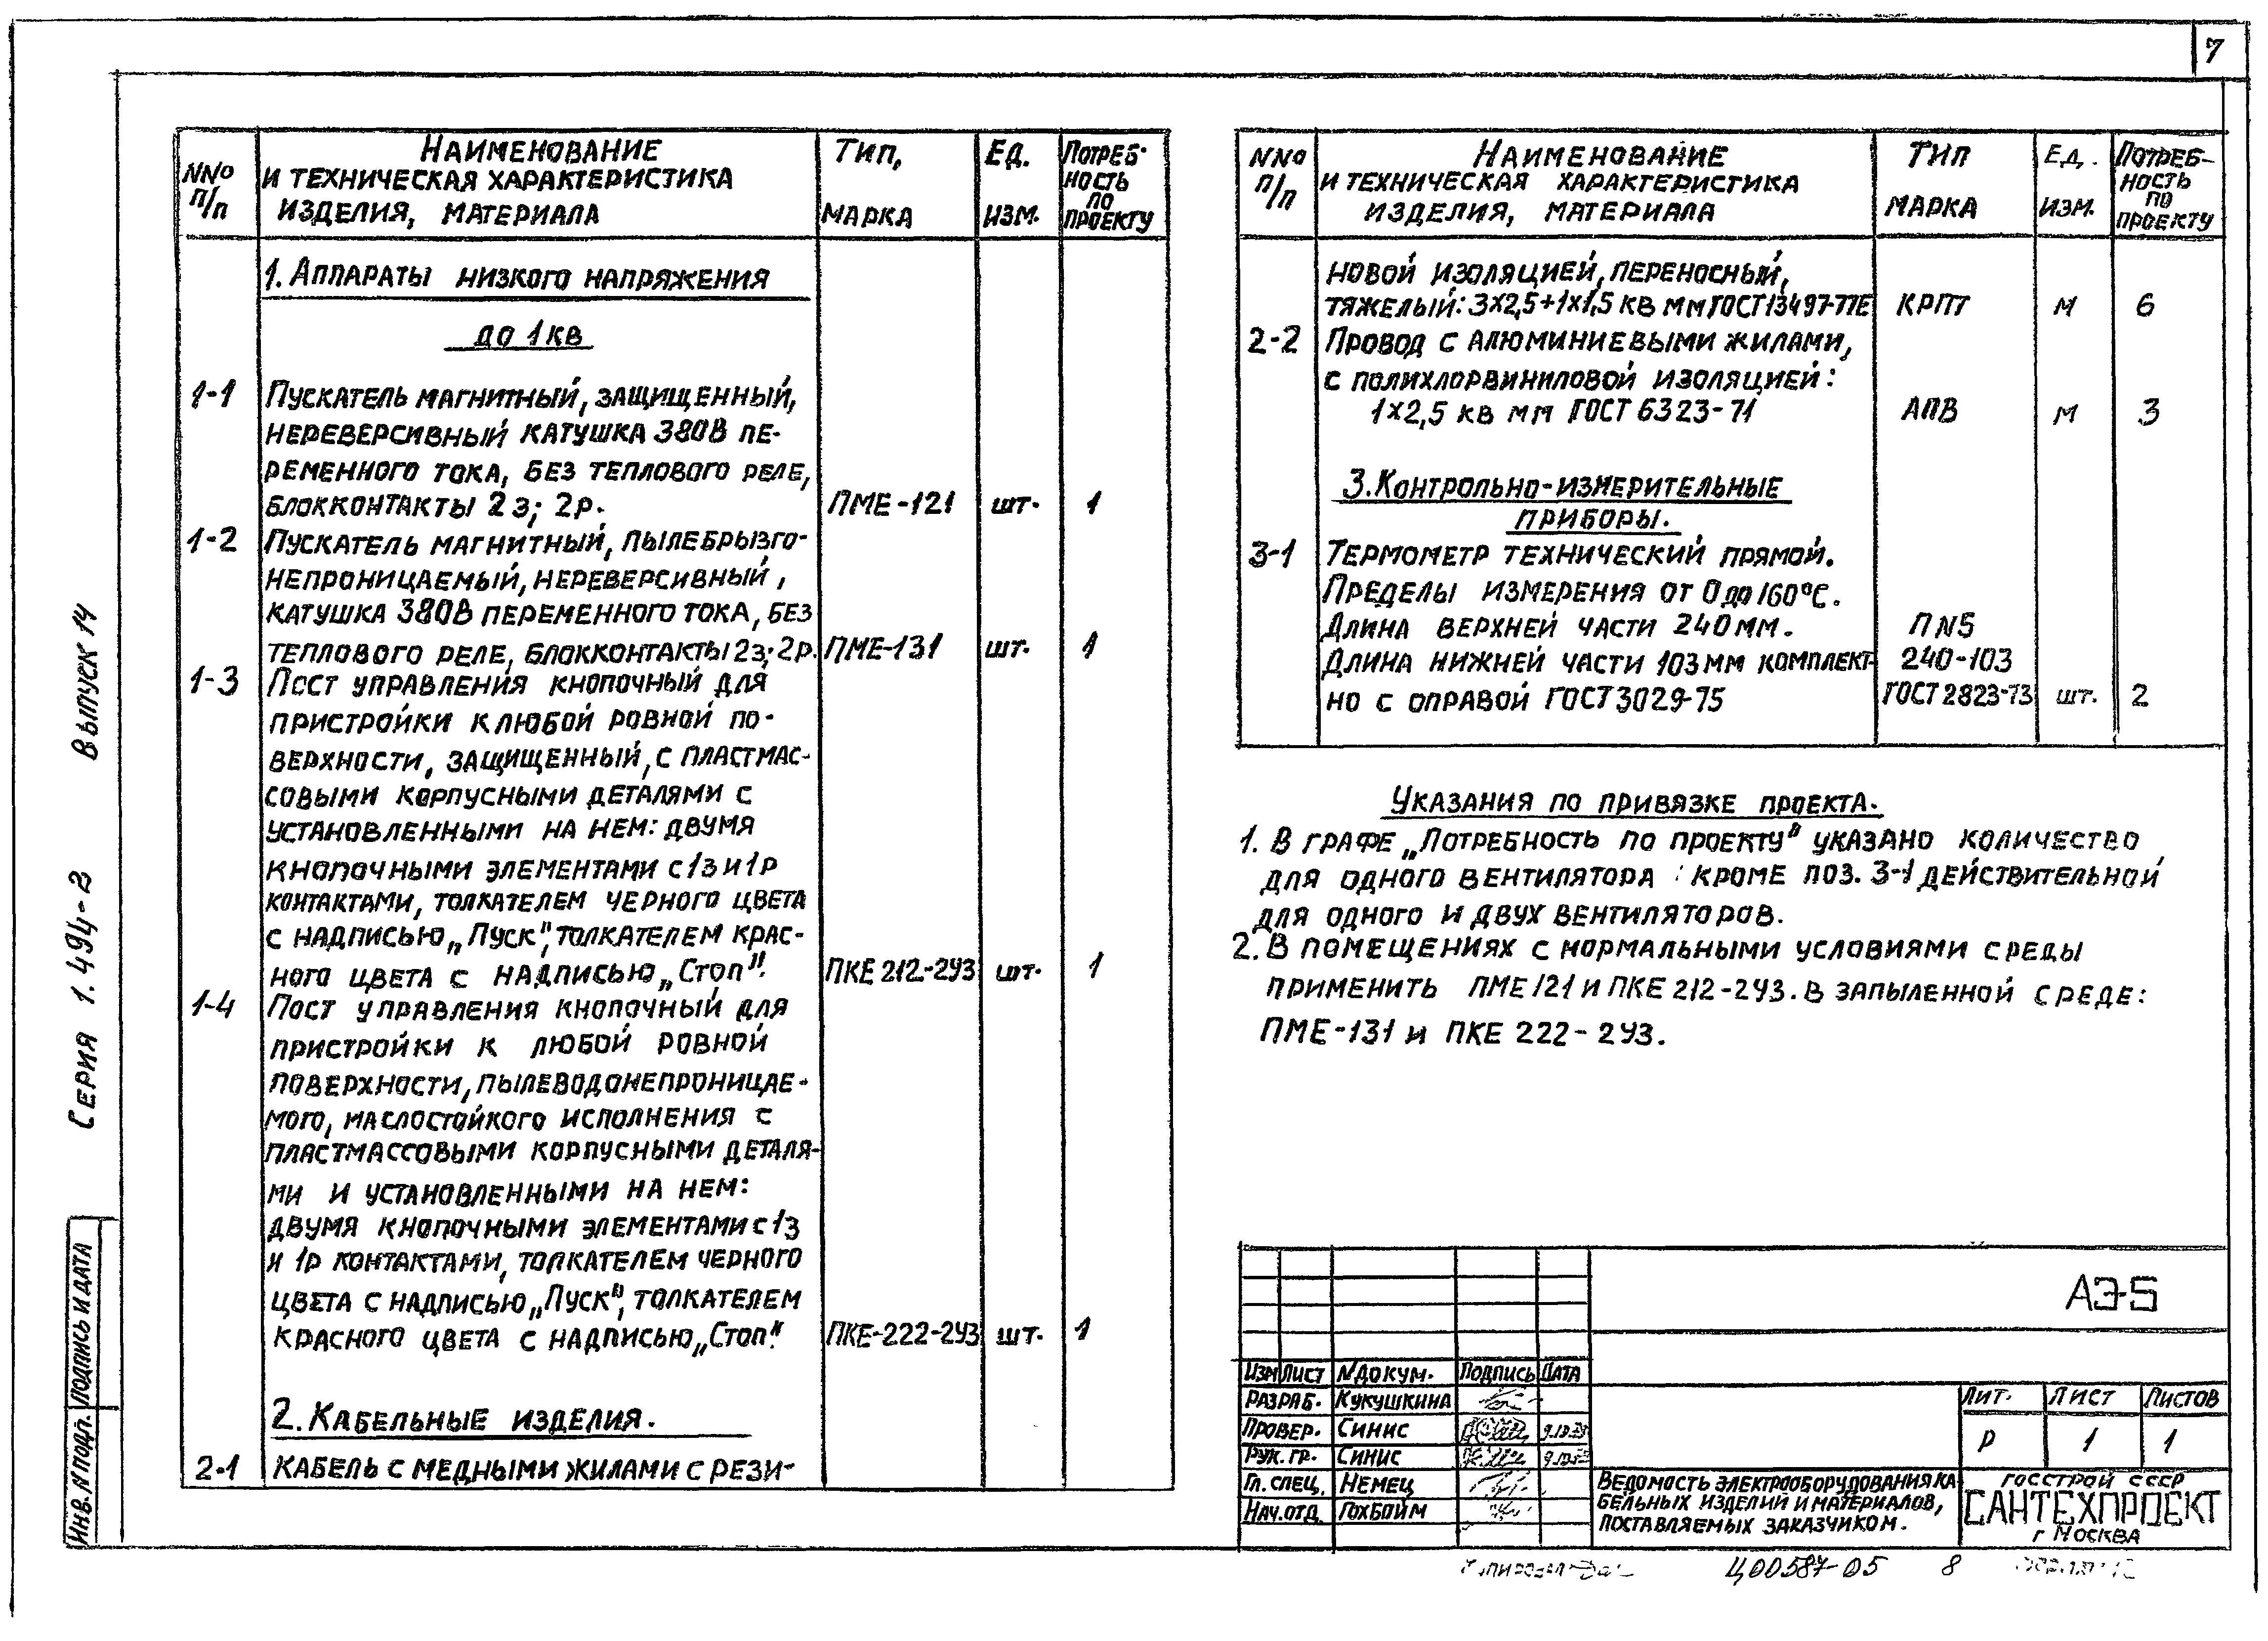 7
NNo п/п
Наименование
и техническая характеристика
изделия, материала
Тип,
марка
Ед.
изм.
Потреб-
ность
по
проекту
1. Аппараты низкого напряжения
до 1кв
1-1 Пускатель магнитный, защищенный,
нереверсивный катушка 380В пе-
ременного тока, без теплового реле,
блокконтакты 2з; 2р. ПМЕ-121 шт. 1
1-2 Пускатель магнитный, пылебрызго-
непроницаемый, нереверсивный,
катушка 380В переменного тока, без
теплового реле, блокконтакты 2з; 2р. ПМЕ-131 шт. 1
1-3 Пост управления кнопочный для
пристройки к любой ровной по-
верхности, защищенный, с пластмас-
совыми корпусными деталями с
установленными на нем: двумя
кнопочными элементами с 1з и 1р
контактами, толкателем черного цвета
с надписью „Пуск", толкателем крас-
ного цвета с надписью „Стоп". ПКЕ 212-2У3 шт. 1
1-4 Пост управления кнопочный для
пристройки к любой ровной
поверхности, пылеводонепроницае-
мого, маслостойкого исполнения с
пластмассовыми корпусными деталя-
ми и установленными на нем:
двумя кнопочными элементами с 1з
и 1р контактами, толкателем черного
цвета с надписью „Пуск", толкателем
красного цвета с надписью „Стоп". ПКЕ-222-2У3 шт. 1
2. Кабельные изделия.
2-1 Кабель с медными жилами с рези-
NNo п/п
Наименование
и техническая характеристика
изделия, материала
Тип
марка
Ед.
изм.
Потреб-
ность
по
проекту
новой изоляцией, переносный,
тяжелый: 3х2,5+1х1,5 кв мм ГОСТ 13497-77Е КРПТ м 6
2-2 Провод с алюминиевыми жилами,
с полихлорвиниловой изоляцией:
1х2,5 кв мм ГОСТ 6323-71 АПВ м 3
3. Контрольно-измерительные
приборы.
3-1 Термометр технический прямой.
Пределы измерения от 0 до 160°С.
Длина верхней части 240 мм. П N5
Длина нижней части 103 мм комплект- 240-103
но с оправой ГОСТ 3029-75 ГОСТ 2823-73 шт. 2
Указания по привязке проекта.
1. В графе „Потребность по проекту" указано количество
для одного вентилятора, кроме поз. 3-1 действительной
для одного и двух вентиляторов.
2. В помещениях с нормальными условиями среды
применить ПМЕ 121 и ПКЕ 212-2У3. В запыленной среде:
ПМЕ-131 и ПКЕ 222-2У3.
Серия 1.494-2 Выпуск 14
Инв. N подл. Подпись и дата
АЭ-5
Изм Лист N докум. Подпись Дата
Разраб. Кукушкина
Провер. Синис
Рук. гр. Синис
Гл. спец. Немец
Нач. отд. Гохбойм
Лит. Лист Листов
Р 1 1
Ведомость электрооборудования ка
бельных изделий и материалов,
поставляемых заказчиком.
Госстрой СССР
САНТЕХПРОЕКТ
г Москва
Ц00587-05 8